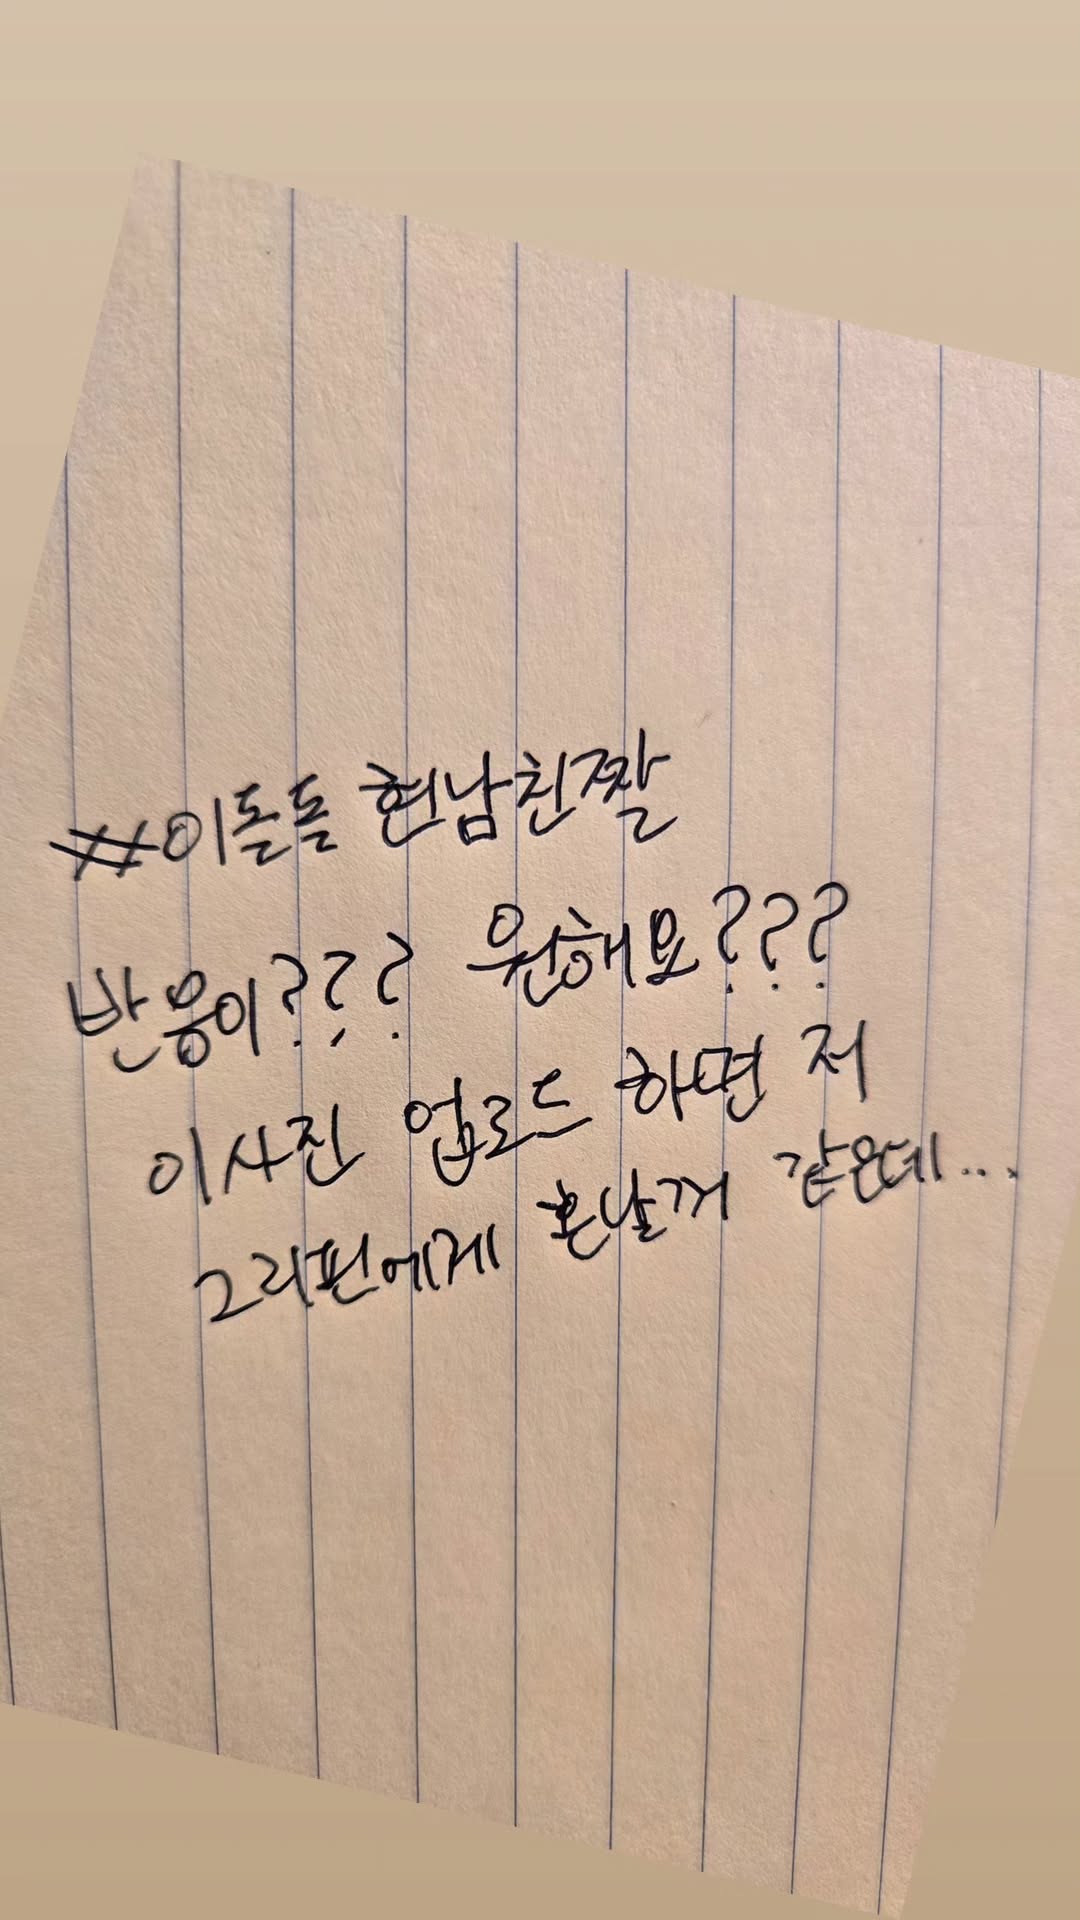 #이돌돌 현남친짤
반응이??? 원해요???
이사진 업로드 하면 저
그리핀에게 혼날꺼 같은데...